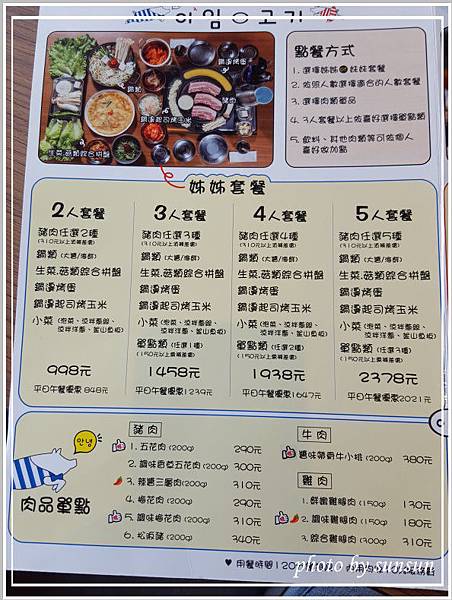 이임 고기
點餐方式
1. 選擇姊姊 or 妹妹套餐
2. 依照人數選擇適合的人數套餐
3. 選擇肉類單品
4. 3人套餐以上依喜好選擇單點類
5. 飲料、其他肉類等可依個人
喜好做加點
鍋邊烤蛋
鍋類
豬肉
鍋邊起司烤玉米
生菜.菇類綜合拼盤
姊姊套餐
2人套餐
豬肉任選2種
(310元以上須補差價)
鍋類 (大醬/海鮮)
生菜.菇類綜合拼盤
鍋邊烤蛋
鍋邊起司烤玉米
小菜 (泡菜、涼拌蔥絲、
涼拌洋蔥、釜山魚板)
998元
平日午餐優惠 848元
3人套餐
豬肉任選3種
(310元以上須補差價)
鍋類 (大醬/海鮮)
生菜.菇類綜合拼盤
鍋邊烤蛋
鍋邊起司烤玉米
小菜 (泡菜、涼拌蔥絲、
涼拌洋蔥、釜山魚板)
單點類 (任選1種)
(150元以上須補差價)
1458元
平日午餐優惠1239元
4人套餐
豬肉任選4種
(310元以上須補差價)
鍋類 (大醬/海鮮)
生菜.菇類綜合拼盤
鍋邊烤蛋
鍋邊起司烤玉米
小菜 (泡菜、涼拌蔥絲、
涼拌洋蔥、釜山魚板)
單點類 (任選2種)
(150元以上須補差價)
1938元
平日午餐優惠1647元
5人套餐
豬肉任選5種
(310元以上須補差價)
鍋類 (大醬/海鮮)
生菜.菇類綜合拼盤
鍋邊烤蛋
鍋邊起司烤玉米
小菜 (泡菜、涼拌蔥絲、
涼拌洋蔥、釜山魚板)
單點類 (任選3種)
(150元以上須補差價)
2378元
平日午餐優惠2021元
안녕
肉品單點
豬肉
1. 五花肉 (200g) 290元
2. 調味香草五花肉 (200g) 300元
3. 辣醬三層肉 (200g) 310元
4. 梅花肉 (200g) 290元
5. 調味梅花肉 (200g) 310元
6. 松阪豬 (200g) 340元
牛肉
醬味帶骨牛小排 (200g) 380元
雞肉
1. 鮮嫩雞腿肉 (150g) 130元
2. 調味雞腿肉 (150g) 180元
3. 綜合雞腿肉 (300g) 310元
♥ 用餐時間120
photo by sunsun